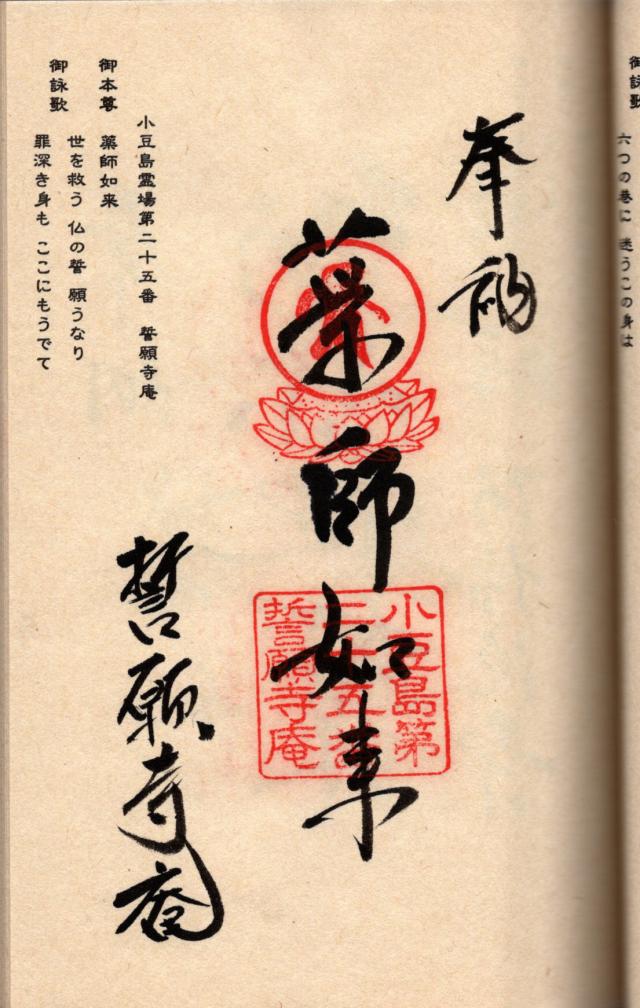 御詠歌
六つの巷に 迷うこの身は
奉納
薬師如来
小豆島第
二十五番
誓願寺庵
小豆島霊場第二十五番 誓願寺庵
御本尊 薬師如来
御詠歌 世を救う 仏の誓 願うなり
罪深き身も ここにもうでて
誓願寺庵